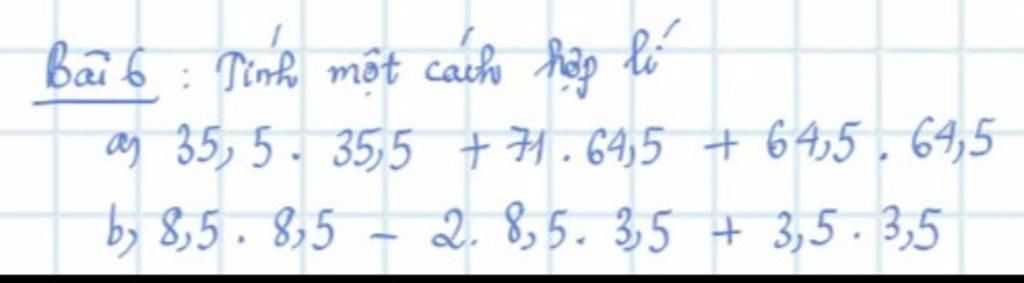 Bài 6 : Tính một cách hợp lí
a) 35,5 . 35,5 + 71 . 64,5 + 64,5 . 64,5
b) 8,5 . 8,5 - 2. 8,5. 3,5 + 3,5 . 3,5